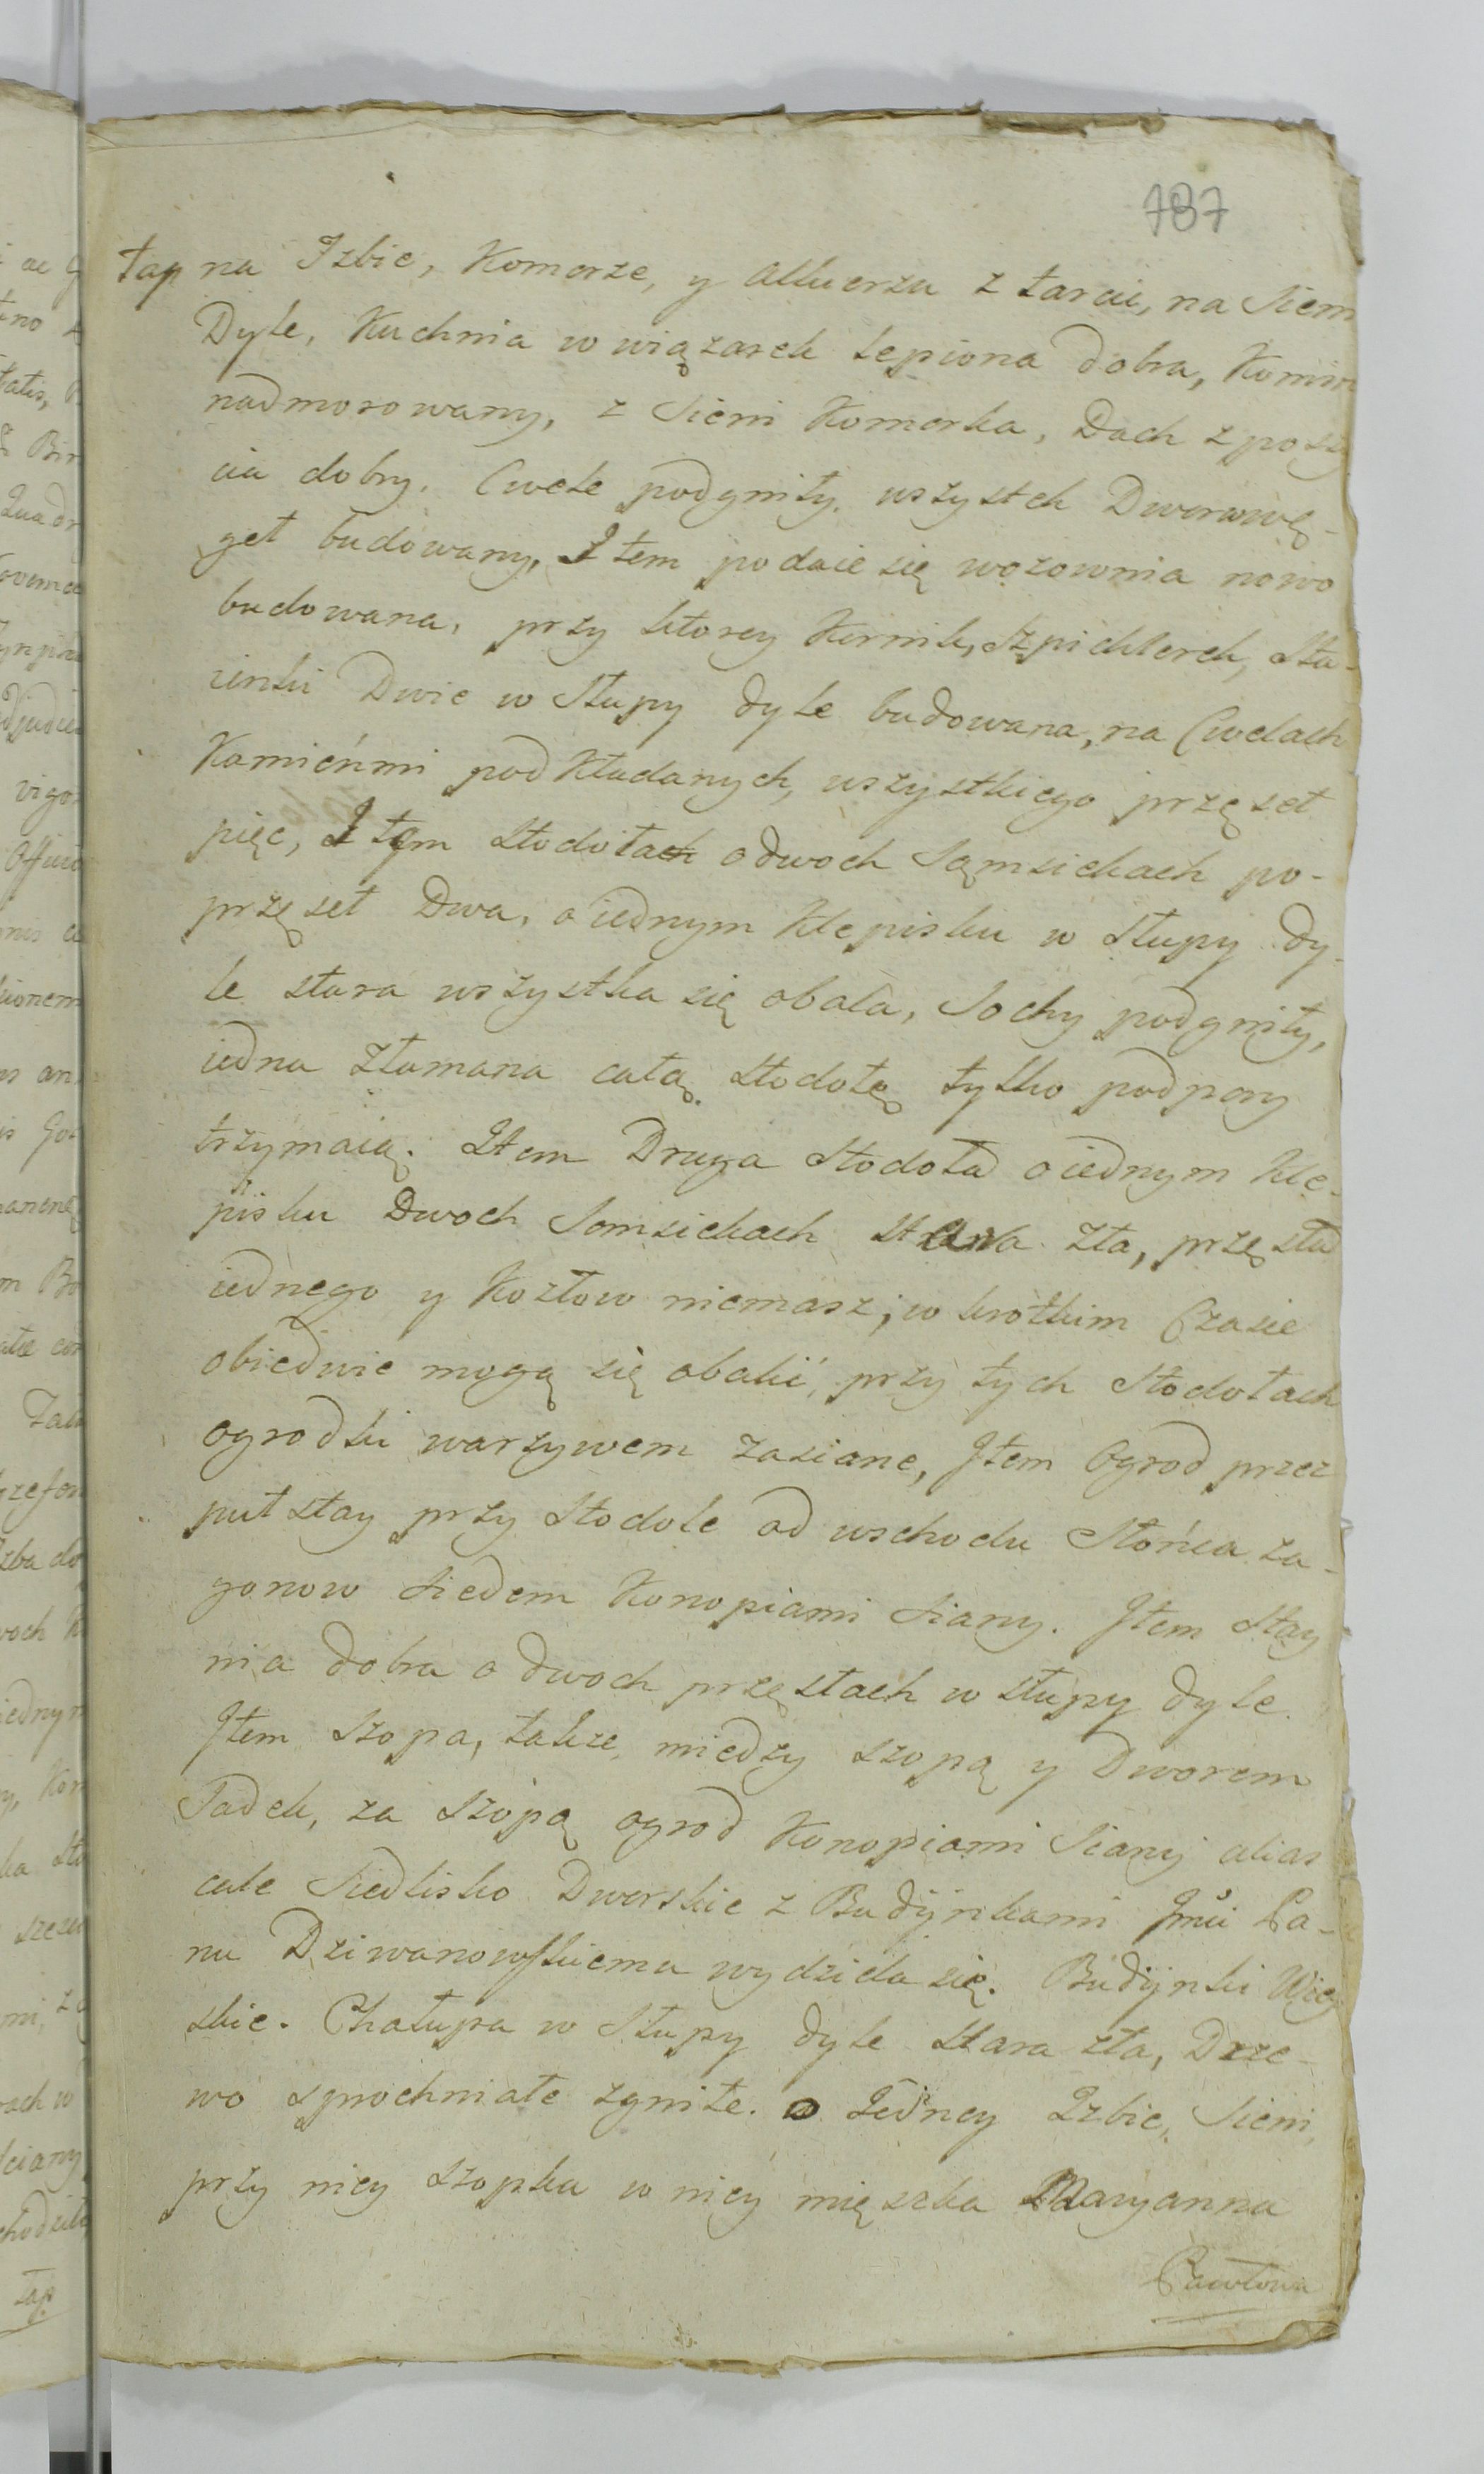 787
łap na Izbie, Komorze, y Alkierzu z tarcic, na Sieni
Dyle, Kuchnia w wiązarek lepiona dobra, Komin
nadmorowany, z Sieni Komorka, Dach z poszy
cia dobry. Cwele podgniły. wszystek Dwor w wę-
geł budowany, Item podaie się wozownia nowo
budowana, przy ktorey Kurnik, Szpichlerek, Sta-
ienki Dwie w Słupy dyle budowana, na Cwelach
Kamieńmi podkładanych, wszystkiego przęseł
pięc, Item Stodoła o dwoch Sąmsiekach po-
przęseł Dwa, o iednym Klepisku w Słupy dy-
le stara wszystka się obala, Sochy podgniły,
iedna złamana całą Stodołę tylko podpory
trzymaią. Item Druga Stodoła o iednym Kle-
pisku Dwoch Somsiekach stara zła, przęsła
iednego y Kozłow niemasz, w krotkim Czasie
obiedwie mogą się obalić, przy tych Stodołach
ogrodki warzywem zasiane, Item Ogrod przez
puł stay przy Stodole od wschodu Słońca za-
gonow siedem Konopiami siany. Item Stay
nia dobra o dwoch przęsłach w słupy dyle.
Item szopa, także między szopą y Dworem
Sadek, za szopą ogrod Konopiami Siany alias
całe Siedlisko Dworskie z Budynkami Jmci Pa-
nu Dziwanowskiemu wydziela się. Budynki Wiey
skie. Chałupa w Słupy dyle stara zła, Drze-
wo sprochniałe zgniłe. o Jedney Izbie, Sieni,
przy niey szopka w niey mięszka Maryanna
Pawłowa